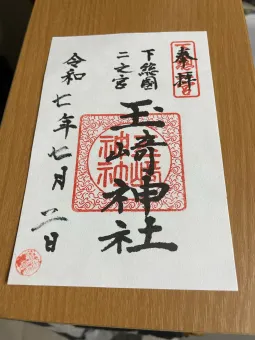 奉拝
下総國
二之宮
玉﨑神社
令和七年七月二日